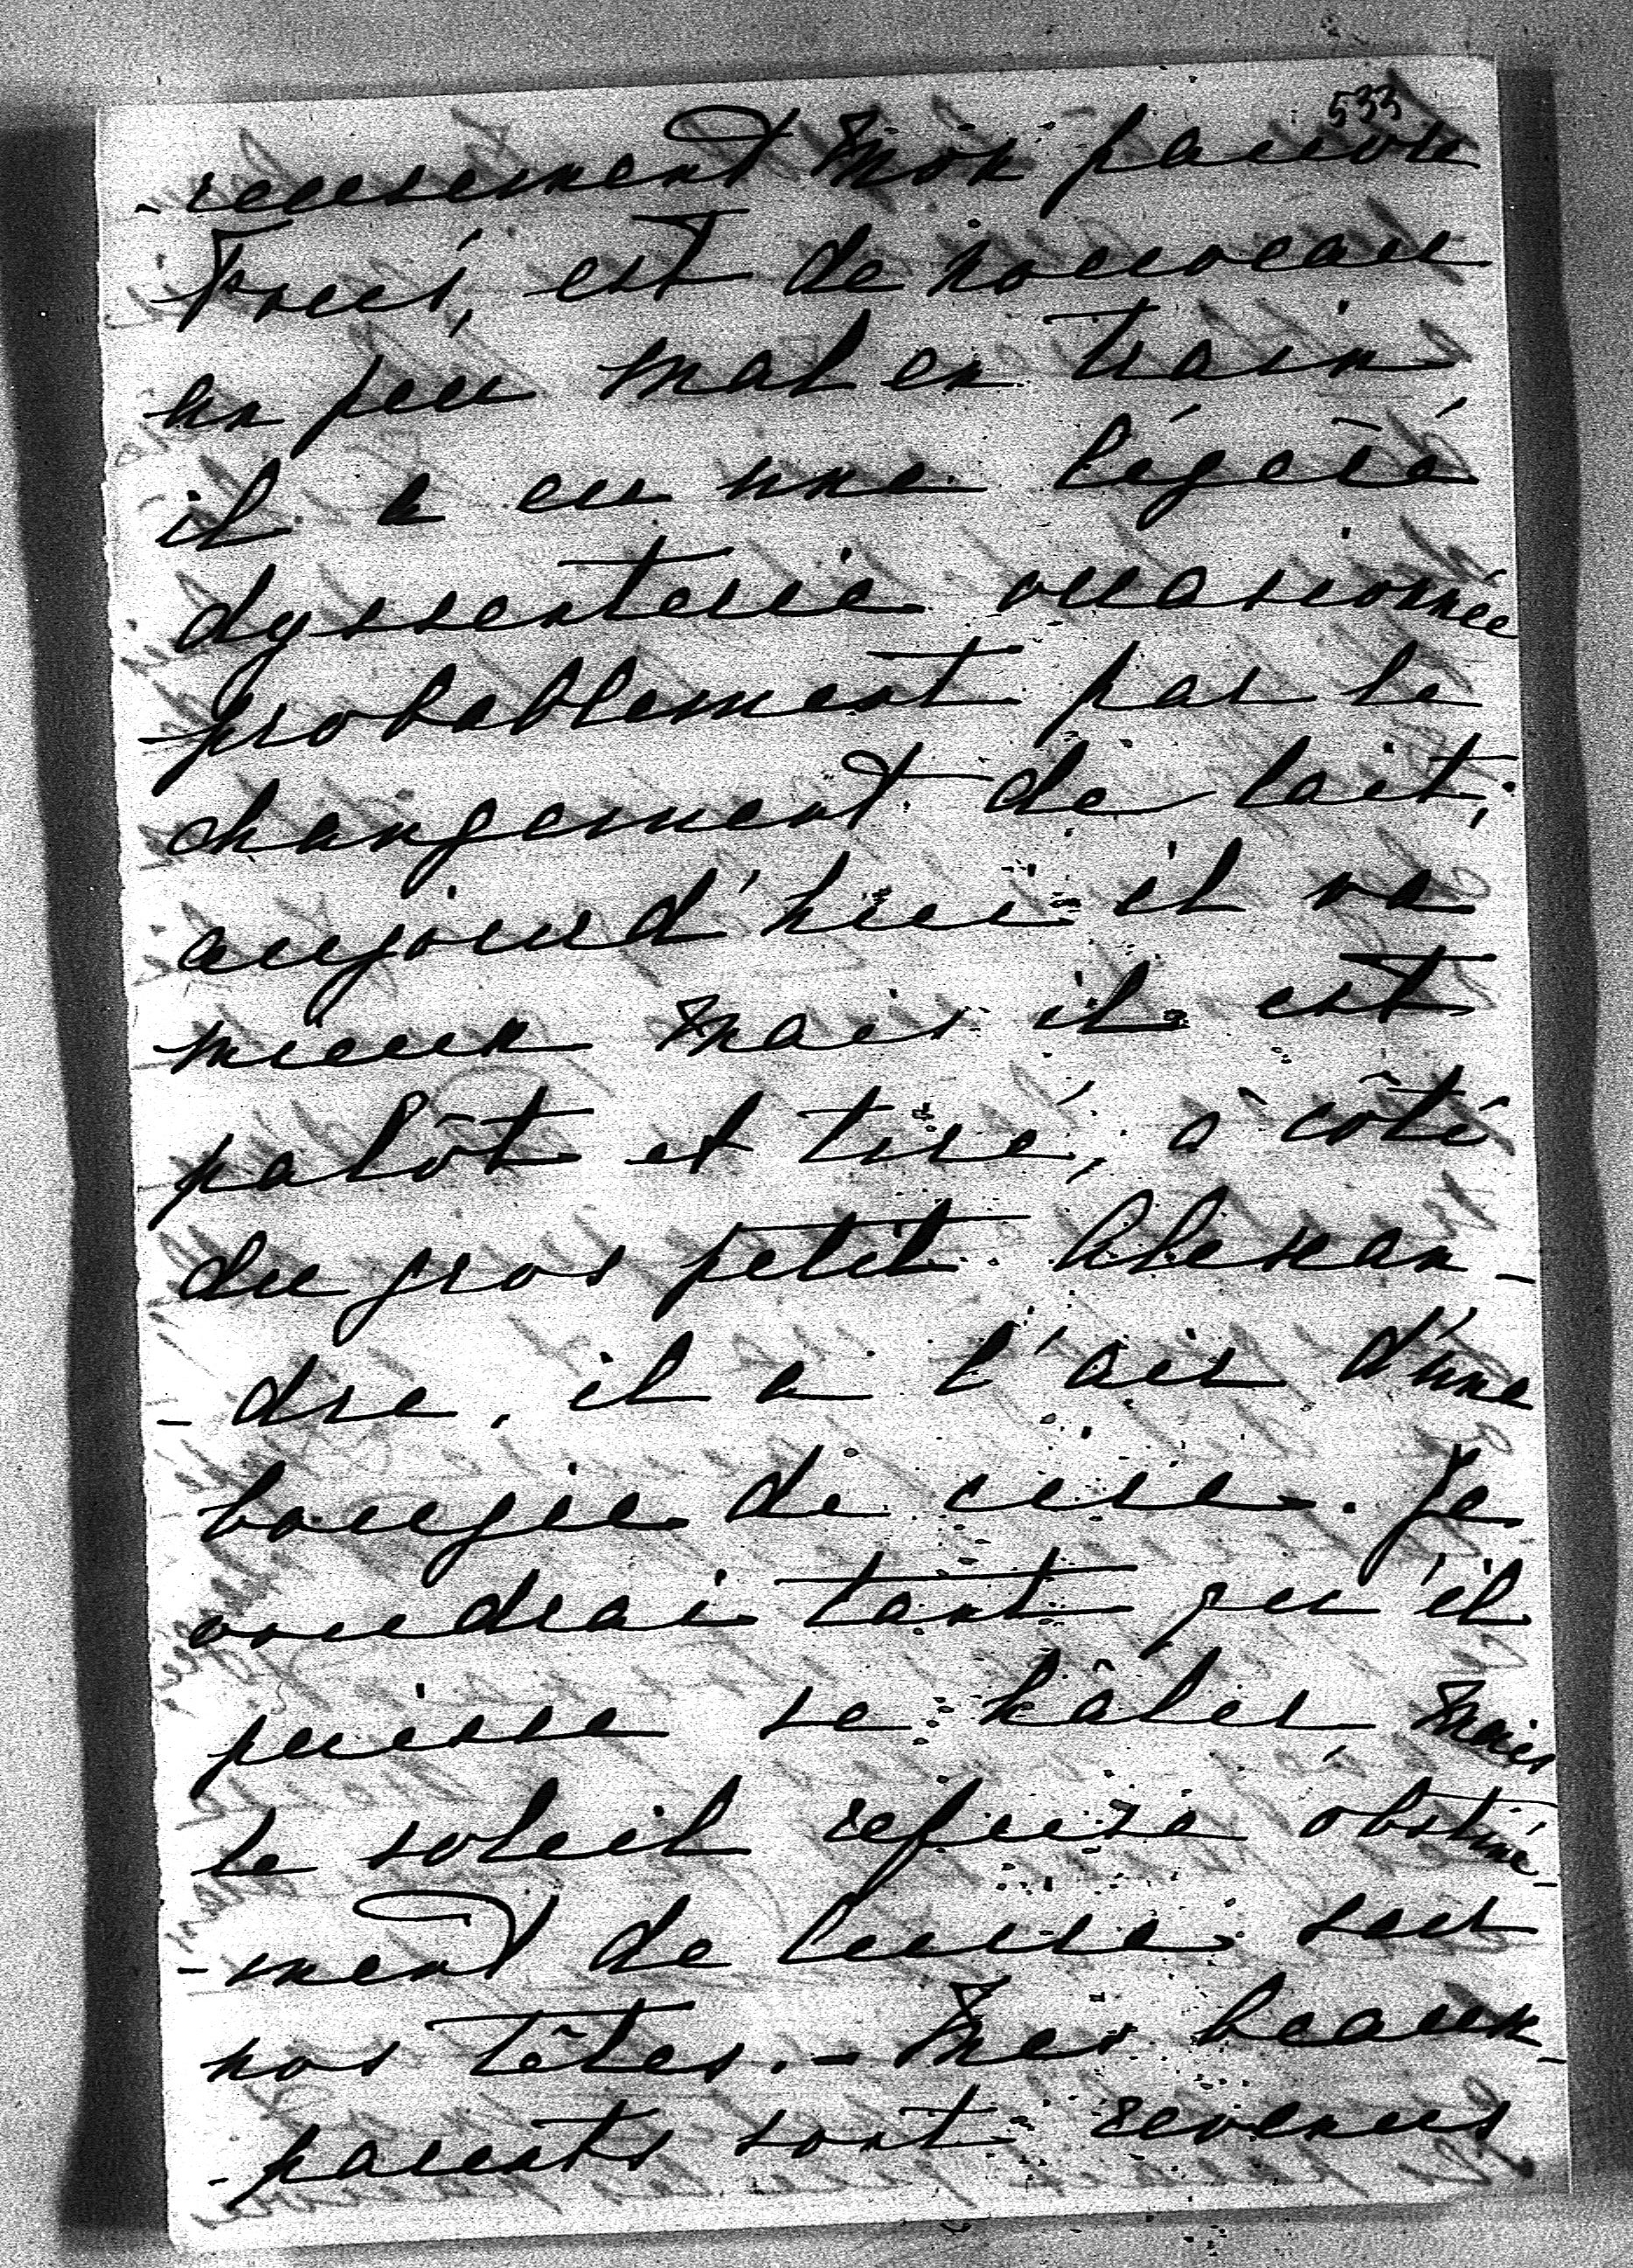 533
-reusement mon pauvre
est de nouveau
un peu mal en train
il a eu une légère
dyssenterie occasionnée
probablement par le
changement de lait;
aujourd'hui il va
mieux mais il est
palôt et tiré, à côté
du gros petit Alexan-
-dre, il a l'air d'une
bougie de cire. Je
voudrai tant qu'il
puisse se hâler, mais
le soleil refuse obstiné-
-ment de luire sur
nos têtes. - Mes beaux-
-parents sont revenus